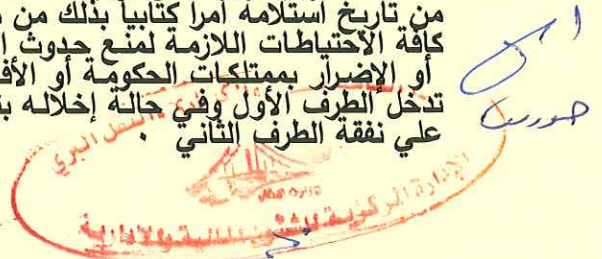 من تاريخ استلامة امرا كتابيا بذلك من
كافة الاحتياطات اللازمة لمنع حدوث
أو الإضرار بممتلكات الحكومة أو
تدخل الطرف الأول وفي حالة إخلاله
علي نفقة الطرف الثاني .
النقل البري
الإدارة المركزية للشئون المالية والادارية